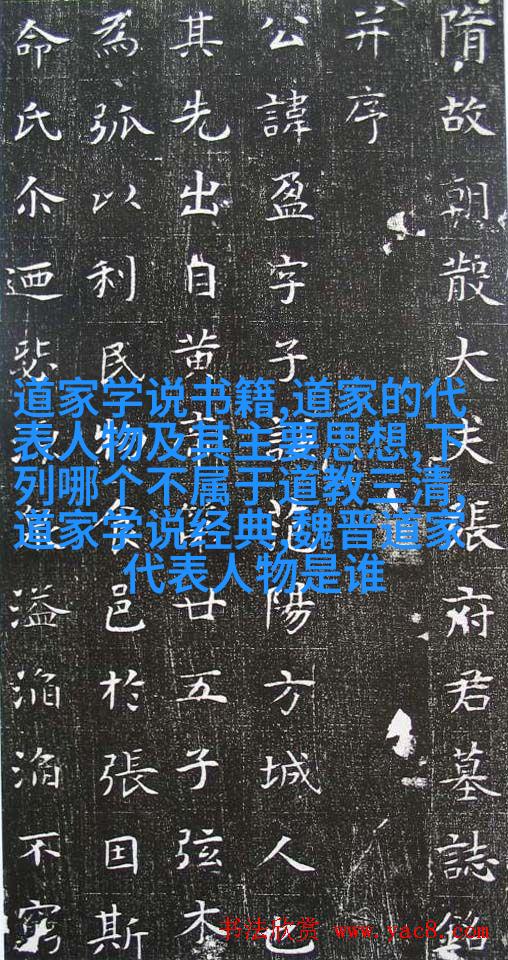 隋故朝散大夫張府君墓誌銘
并序
公諱盈字子範陽方城人也
其先出自黃帝第廿五子弦木
為弧以利民食邑於張因斯
命氏尒迺溢滔滔不窮
道家学说书籍,道家的代
表人物及其主要思想,下
列哪个不属于道教三清,
道家学说经典,魏晋道家
代表人物是谁
书法欣赏 www.yac8.com